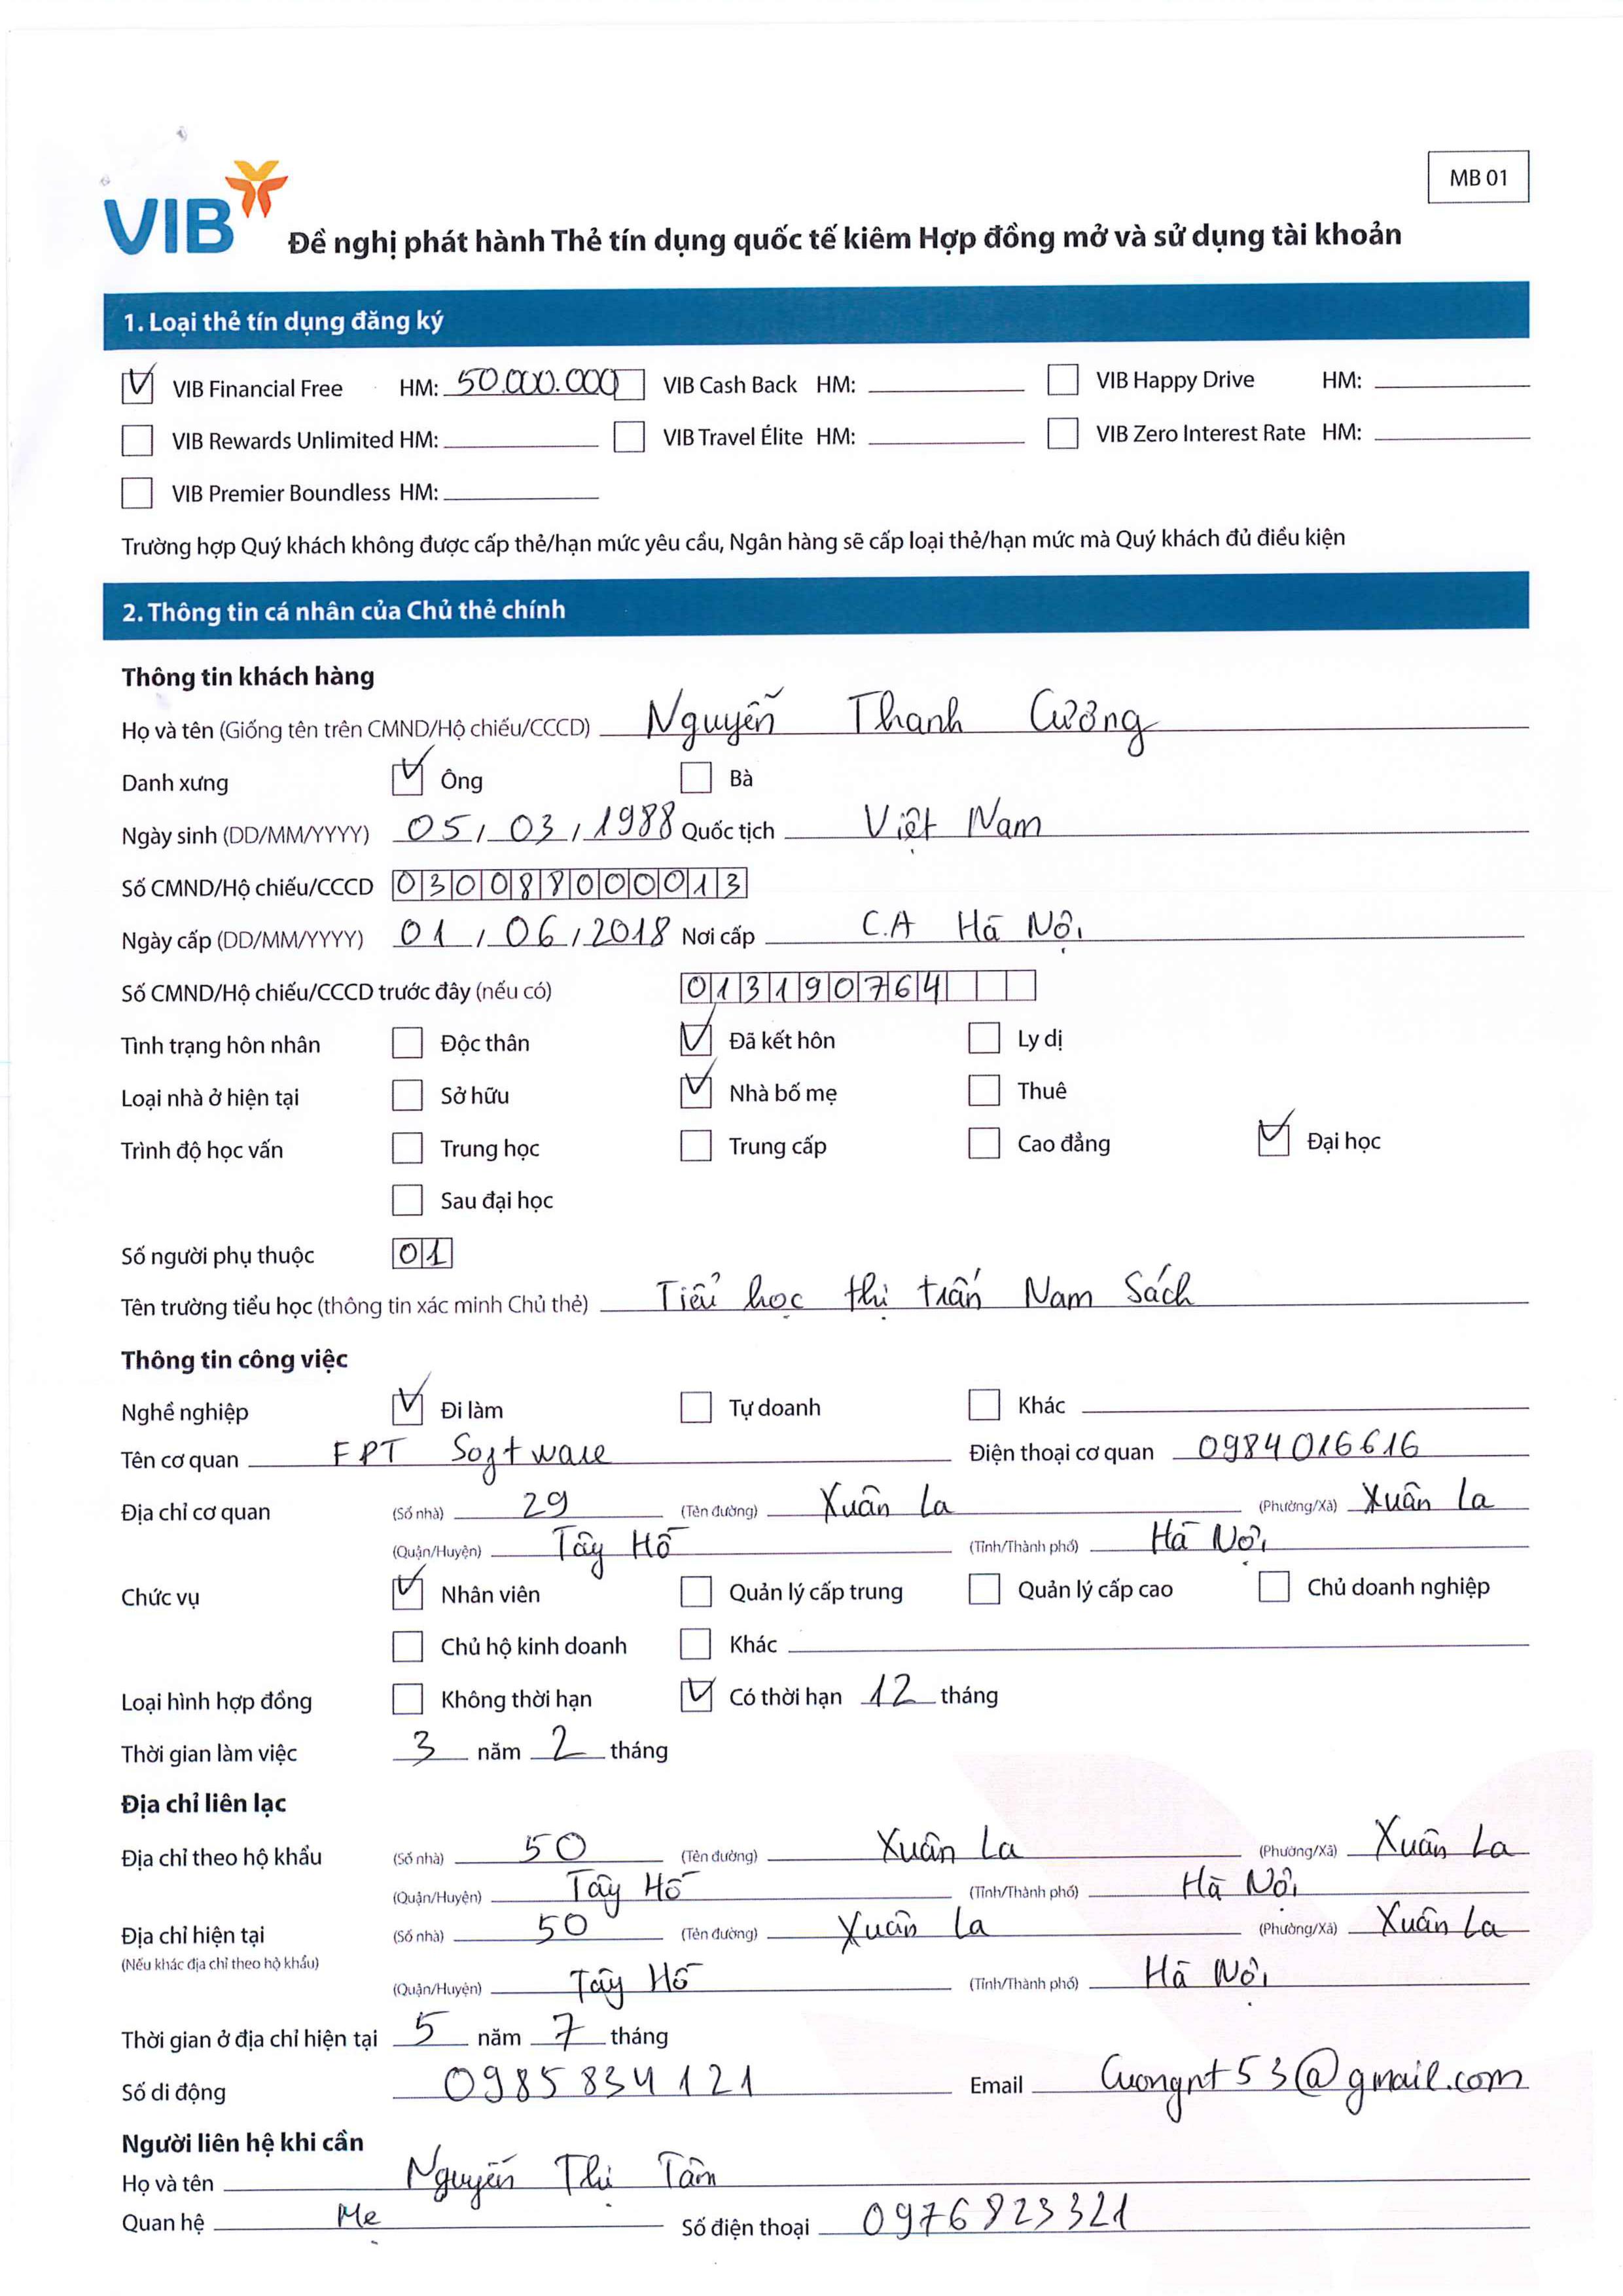 MB 01
VIB
Đề nghị phát hành Thẻ tín dụng quốc tế kiêm Hợp đồng mở và sử dụng tài khoản
1. Loại thẻ tín dụng đăng ký
VIB Financial Free HM: 50.000.000 VIB Cash Back HM: VIB Happy Drive HM:
VIB Rewards Unlimited HM: VIB Travel Élite HM: VIB Zero Interest Rate HM:
VIB Premier Boundless HM:
Trường hợp Quý khách không được cấp thẻ/hạn mức yêu cầu, Ngân hàng sẽ cấp loại thẻ/hạn mức mà Quý khách đủ điều kiện
2. Thông tin cá nhân của Chủ thẻ chính
Thông tin khách hàng
Họ và tên (Giống tên trên CMND/Hộ chiếu/CCCD) Nguyễn Thanh Cương
Danh xưng Ông Bà
Ngày sinh (DD/MM/YYYY) 05/03/1988 Quốc tịch Việt Nam
Số CMND/Hộ chiếu/CCCD 030088000013
Ngày cấp (DD/MM/YYYY) 01/06/2018 Nơi cấp C.A Hà Nội
Số CMND/Hộ chiếu/CCCD trước đây (nếu có) 013190764
Tình trạng hôn nhân Độc thân Đã kết hôn Ly dị
Loại nhà ở hiện tại Sở hữu Nhà bố mẹ Thuê
Trình độ học vấn Trung học Trung cấp Cao đẳng Đại học
Sau đại học
Số người phụ thuộc 01
Tên trường tiểu học (thông tin xác minh Chủ thẻ) Tiểu học thị trấn Nam Sách
Thông tin công việc
Nghề nghiệp Đi làm Tự doanh Khác
Tên cơ quan FPT Software Điện thoại cơ quan 0984016616
Địa chỉ cơ quan (Số nhà) 29 (Tên đường) Xuân La (Phường/Xã) Xuân La
(Quận/Huyện) Tây Hồ (Tỉnh/Thành phố) Hà Nội
Chức vụ Nhân viên Quản lý cấp trung Quản lý cấp cao Chủ doanh nghiệp
Chủ hộ kinh doanh Khác
Loại hình hợp đồng Không thời hạn Có thời hạn 12 tháng
Thời gian làm việc 3 năm 2 tháng
Địa chỉ liên lạc
Địa chỉ theo hộ khẩu (Số nhà) 50 (Tên đường) Xuân La (Phường/Xã) Xuân La
(Quận/Huyện) Tây Hồ (Tỉnh/Thành phố) Hà Nội
Địa chỉ hiện tại (Số nhà) 50 (Tên đường) Xuân La (Phường/Xã) Xuân La
(Nếu khác địa chỉ theo hộ khẩu)
(Quận/Huyện) Tây Hồ (Tỉnh/Thành phố) Hà Nội
Thời gian ở địa chỉ hiện tại 5 năm 7 tháng
Số di động 0985834121 Email Cuongnt53@gmail.com
Người liên hệ khi cần
Họ và tên Nguyễn Thị Tâm
Quan hệ Mẹ Số điện thoại 0976823321